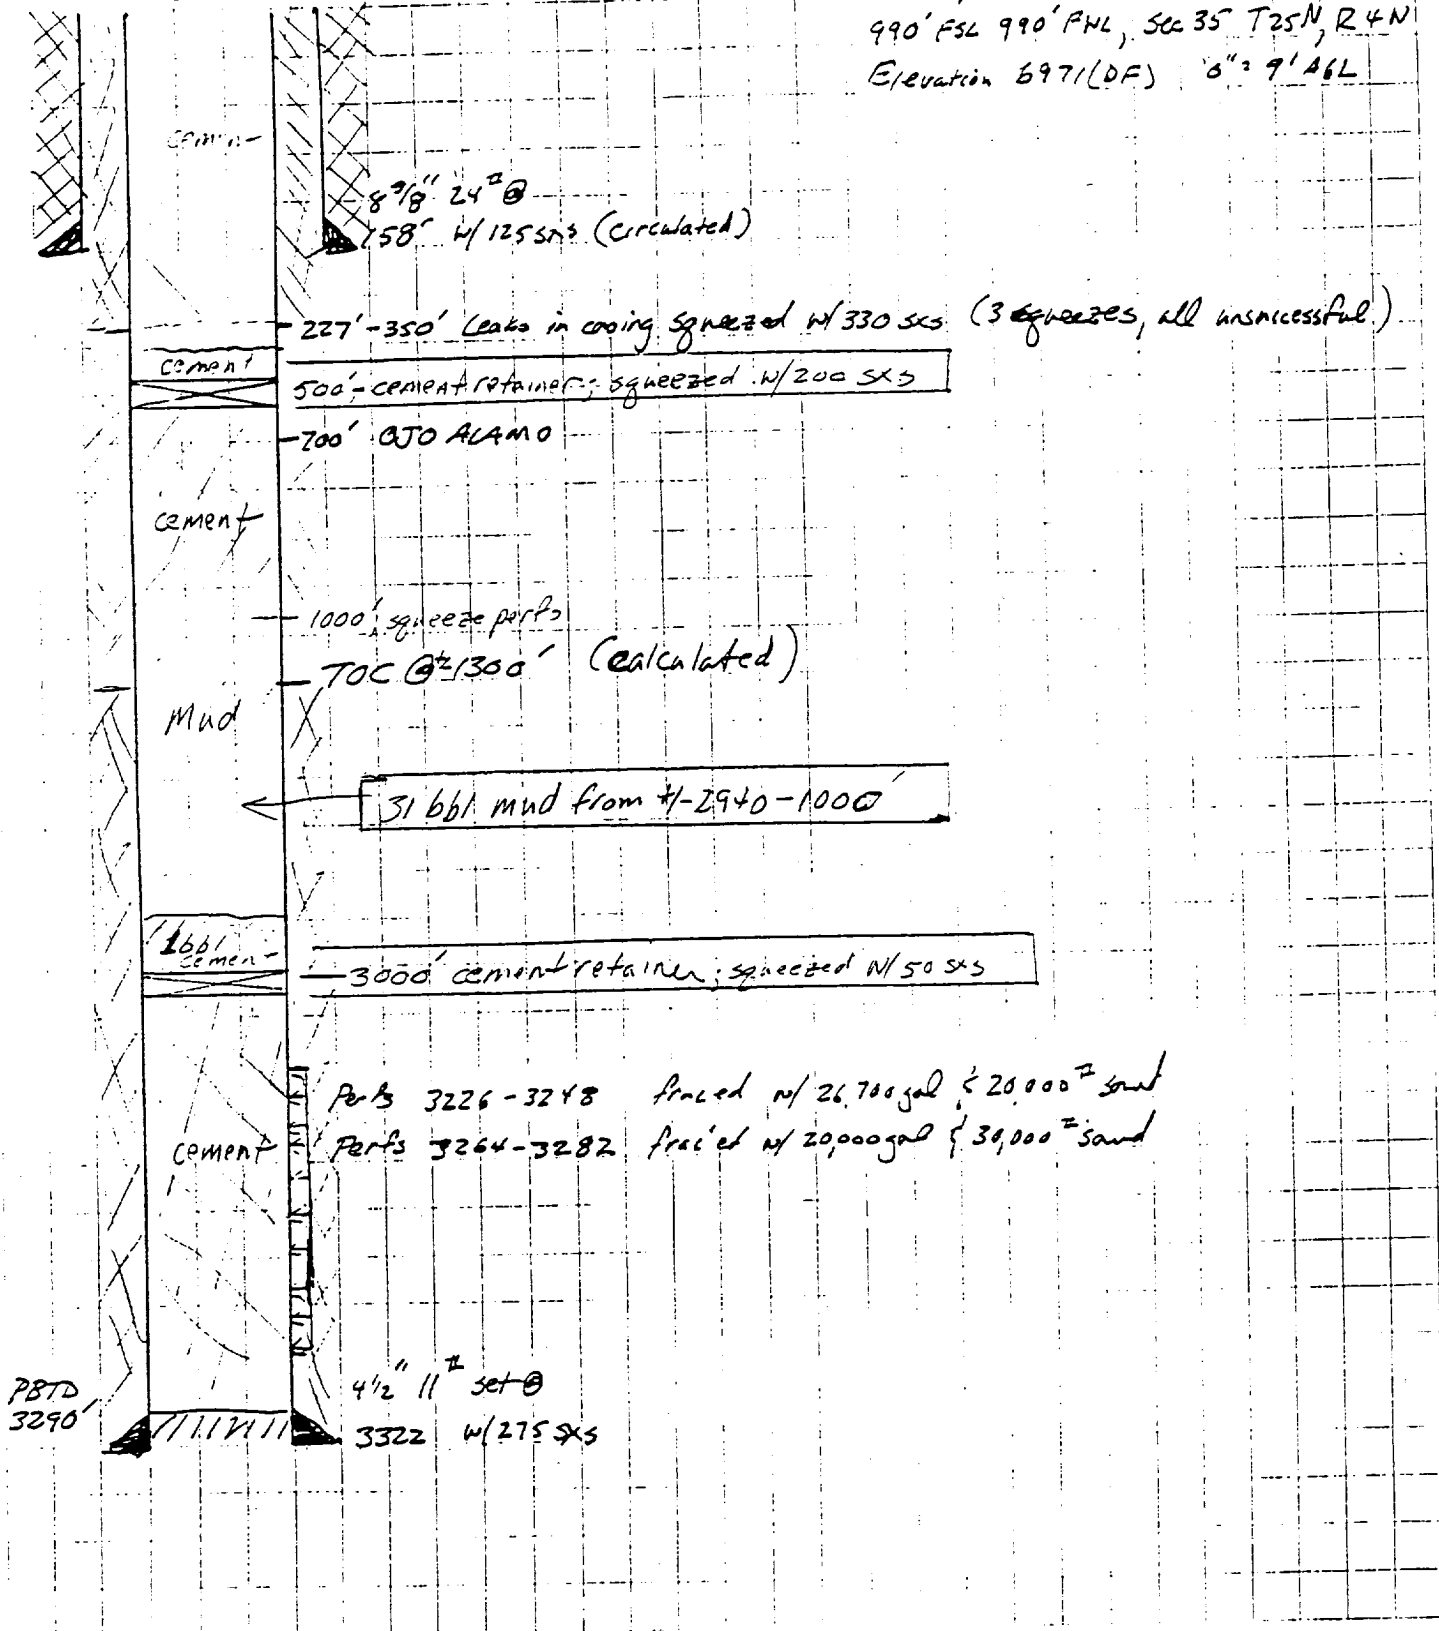 990' FSL 990' FNL, Sec 35 T25N, R4N
Elevation 6971(DF) "0" = 9' AGL
cement
8 5/8" 24# @
158' w/125 sxs (circulated)
227'-350' Leaks in casing squeezed w/330 sxs (3 squeezes, all unsuccessful)
cement
500'- cement retainer; squeezed w/200 sxs
700' OJO ALAMO
cement
1000' squeeze perfs
TOC @ ± 1300' (calculated)
Mud
31 bbl mud from +/-2940-1000'
1 bbl
cement
3000' cement retainer; squeezed w/50 sxs
Perfs 3226-3248 fraced w/ 26,700 gal & 20,000# sand
cement
Perfs 3264-3282 frac'ed w/ 20,000 gal & 30,000# sand
4 1/2" 11# set @
PBTD
3290'
3322 w/275 sxs